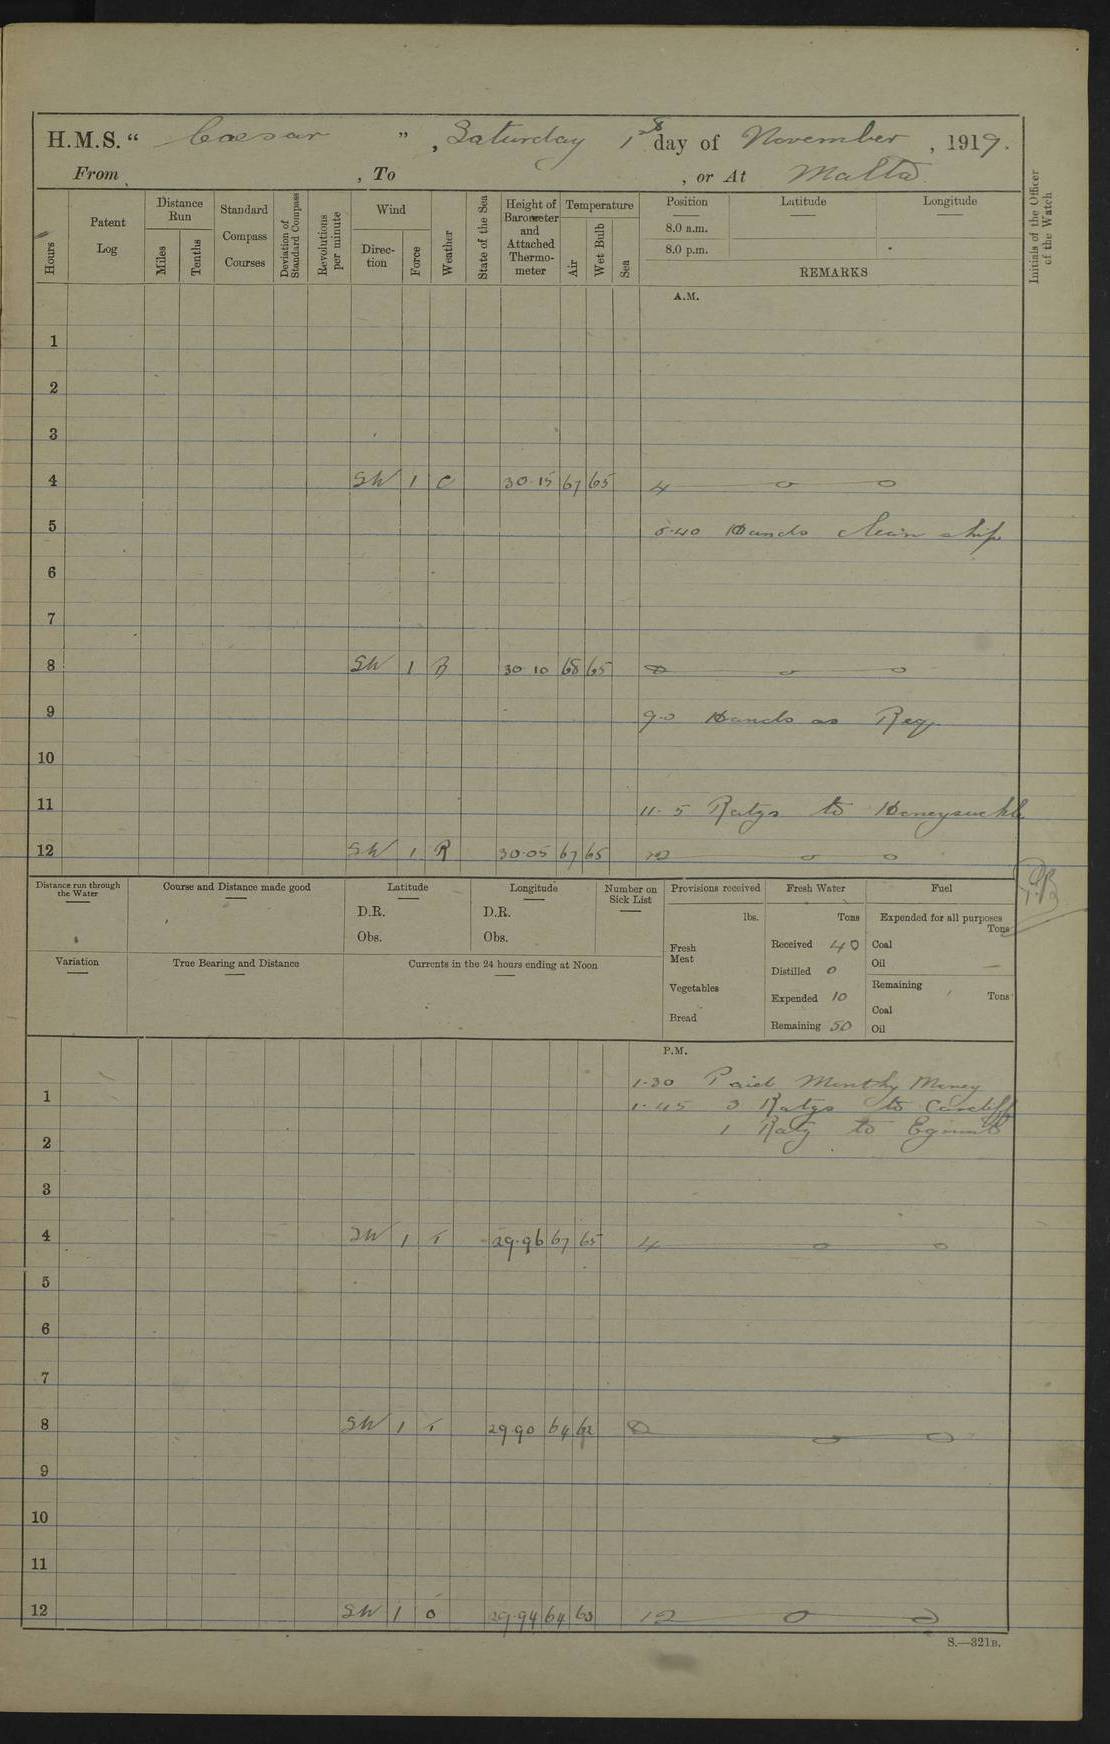 H.M.S. “ Caesar ”, Saturday 1st day of November, 1919.
From , To , or At Malta
Hours
Patent Log
Distance Run
Miles
Tenths
Standard Compass Courses
Deviation of Standard Compass
Revolutions per minute
Wind
Direc-tion
Force
Weather
State of the Sea
Height of Barometer and Attached Thermo-meter
Temperature
Air
Wet Bulb
Sea
Position Latitude Longitude
8.0 a.m.
8.0 p.m.
REMARKS
Initials of the Officer of the Watch
A.M.
1
2
3
4 SW 1 C 30.15 67 65 4 o o
5 5.40 Hands clean ship
6
7
8 SW 1 R 30 10 68 65 8 o o
9 9.0 Hands as Req.
10
11 11.5 Ratgs to Honeysuckle
12 SW 1 R 30.05 67 65 12 o o
Distance run through the Water
Course and Distance made good
Latitude
D.R.
Obs.
Longitude
D.R.
Obs.
Number on Sick List
Provisions received
lbs.
Fresh Meat
Vegetables
Bread
Fresh Water
Tons
Received 40
Distilled 0
Expended 10
Remaining 50
Fuel
Expended for all purposes
Tons
Coal
Oil —
Remaining
Tons
Coal
Oil
Variation
True Bearing and Distance
Currents in the 24 hours ending at Noon
P.M.
1.30 Paid Monthly Money
1 1.45 3 Ratgs to Cardiff
1 Ratg to Egmont
2
3
4 SW 1 29.96 67 65 4 o o
5
6
7
8 SW 1 29.90 64 62 8 o o
9
10
11
12 SW 1 o 29.94 64 63 12 o o
S.—321B.